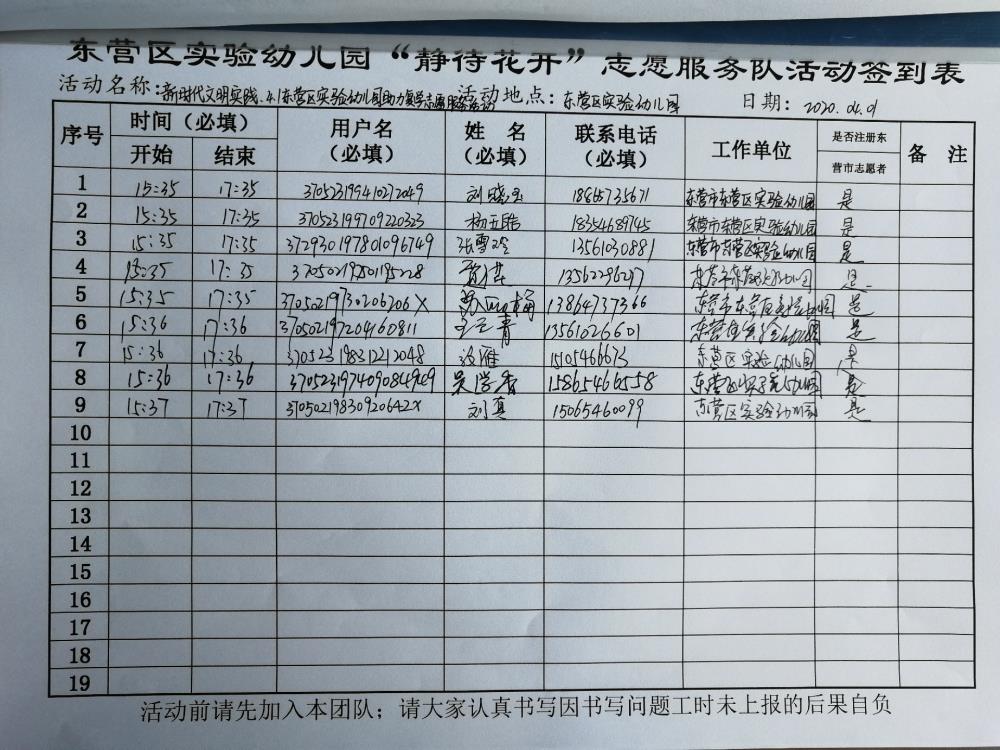 东营区实验幼儿园“静待花开”志愿服务队活动签到表
活动名称：新时代文明实践.4.1东营区实验幼儿园助力复学志愿服务活动 活动地点：东营区实验幼儿园 日期：2020.04.01
序号 时间（必填） 开始 结束 用户名（必填） 姓名（必填） 联系电话（必填） 工作单位 是否注册东营市志愿者 备注
1 15:35 17:35 370523199410272049 刘晓玉 18865735671 东营市东营区实验幼儿园 是
2 15:35 17:35 370523199709220323 杨玉皓 18354689745 东营市东营区实验幼儿园 是
3 15:35 17:35 372930197801096749 张雪玲 13561030881 东营市东营区实验幼儿园 是
4 15:35 17:35 13562296297 是
5 15:35 17:35 37050219730206206X 13864737366 东营市东营区实验幼儿园 是
6 15:36 17:36 370502197204160811 王元青 13561026601 是
7 15:36 17:36 370523198312212048 东营区实验幼儿园 是
8 15:36 17:36 吴学香 15865466558 东营区实验幼儿园 是
9 15:37 17:37 37050219830920642X 刘真 15065460099 东营区实验幼儿园 是
10
11
12
13
14
15
16
17
18
19
活动前请先加入本团队；请大家认真书写因书写问题工时未上报的后果自负